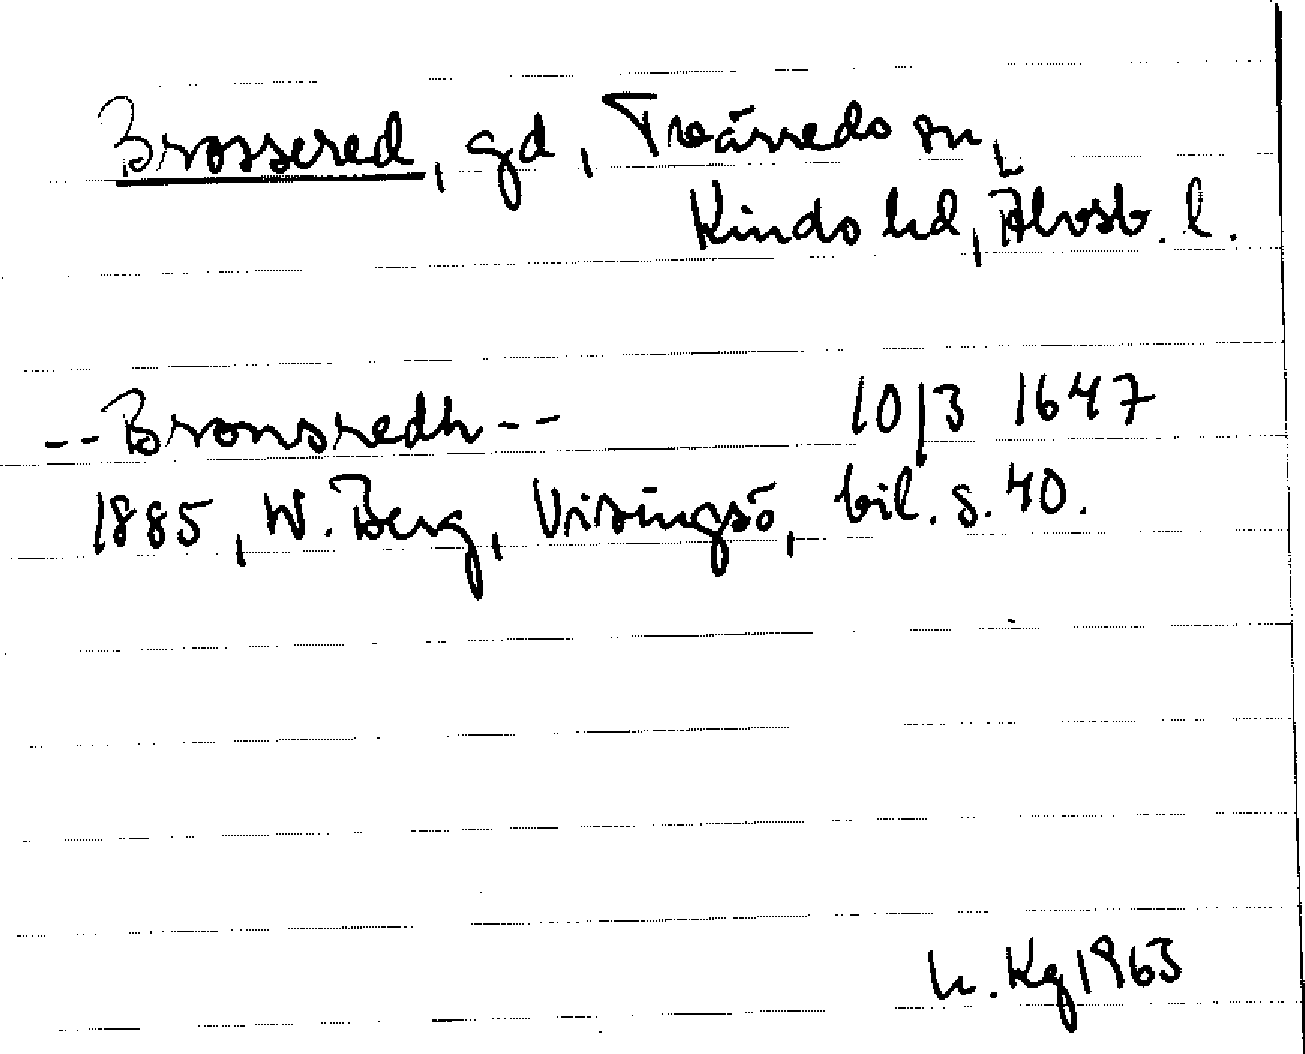 Brossered, gd, Tvärreds sn,
Kinds hd, Älvsb. l.
-- Bronsredh -- 10/3 1647
1885, W. Berg, Visingsö, bil. s. 40.
h. Kg 1963